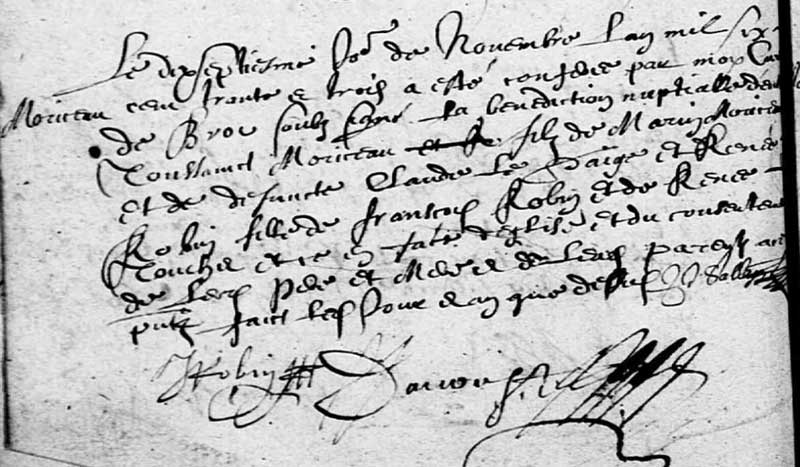 Le dixseptiesme Jor de Novembre Lan mil six
Moriceau cens trante et trois a esté conferée par moy Curé
de Brou soubz signé La benediction nuptialle dentre
Toussainct Moriceau fils de Marin Moriceau
et de defuncte Claude Le Paige et Renée
Robin fille de francois Robin et de Renee
Touche et ce en face deglise et du consentem
de Leurs pere et mere et de Leurs parens
putz faict Les Jour et an que dessus
Robin